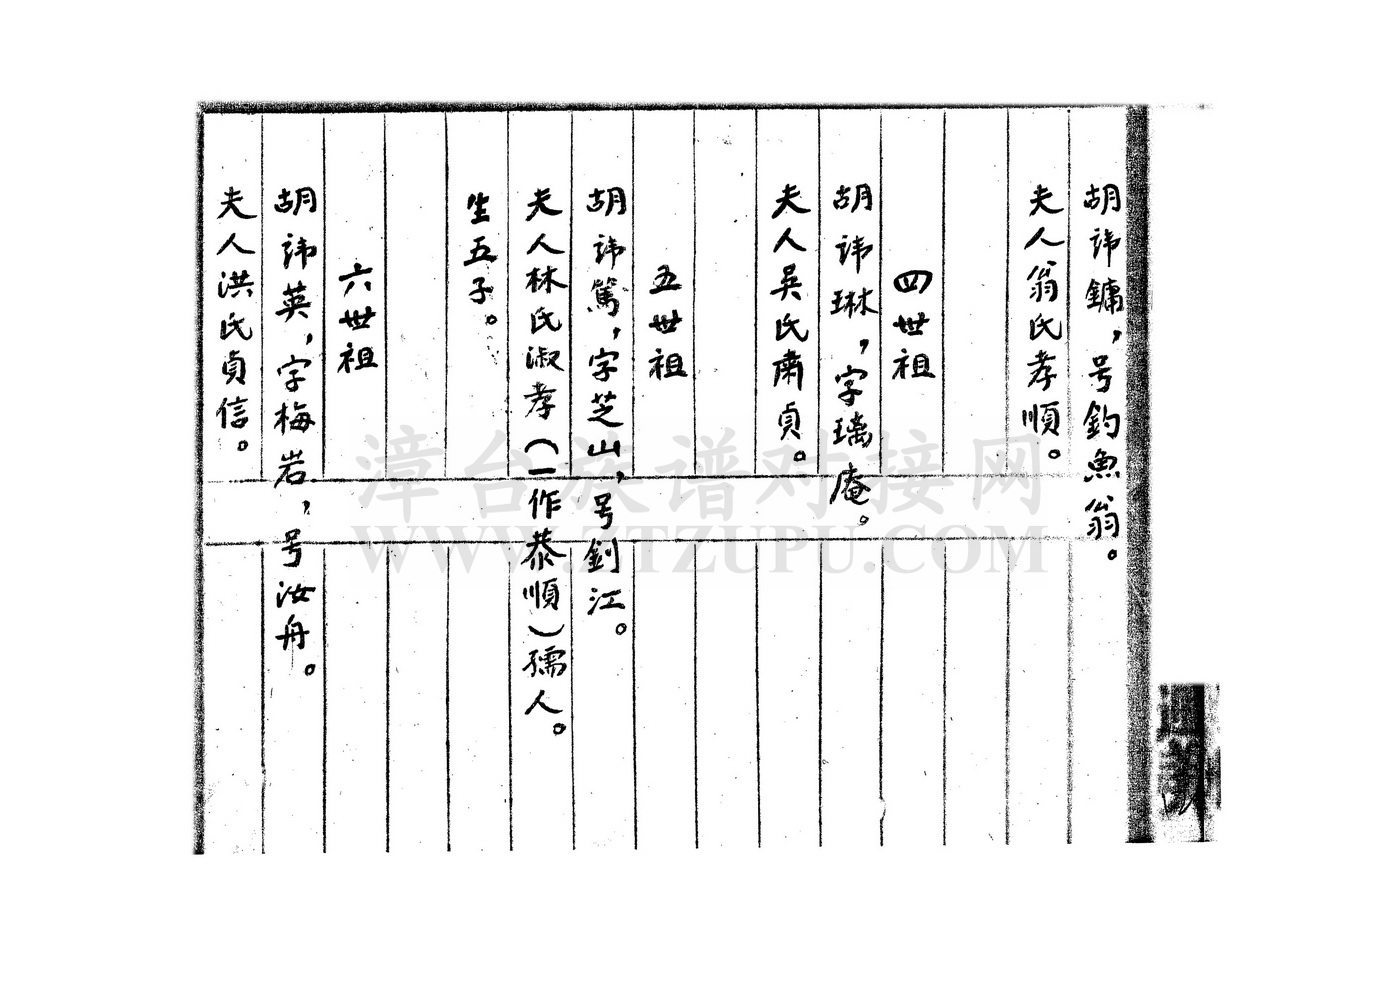 胡諱鏞，号釣魚翁。
夫人翁氏孝順。
四世祖
胡諱琳，字璃庵。
夫人吳氏肅貞。
五世祖
胡諱篤，字芝山，号釗江。
夫人林氏淑孝（一作恭順）孺人。
生五子。
六世祖
胡諱英，字梅岩，号汝舟。
夫人洪氏貞信。
漳台族谱对接网
WWW.ZTZUPU.COM